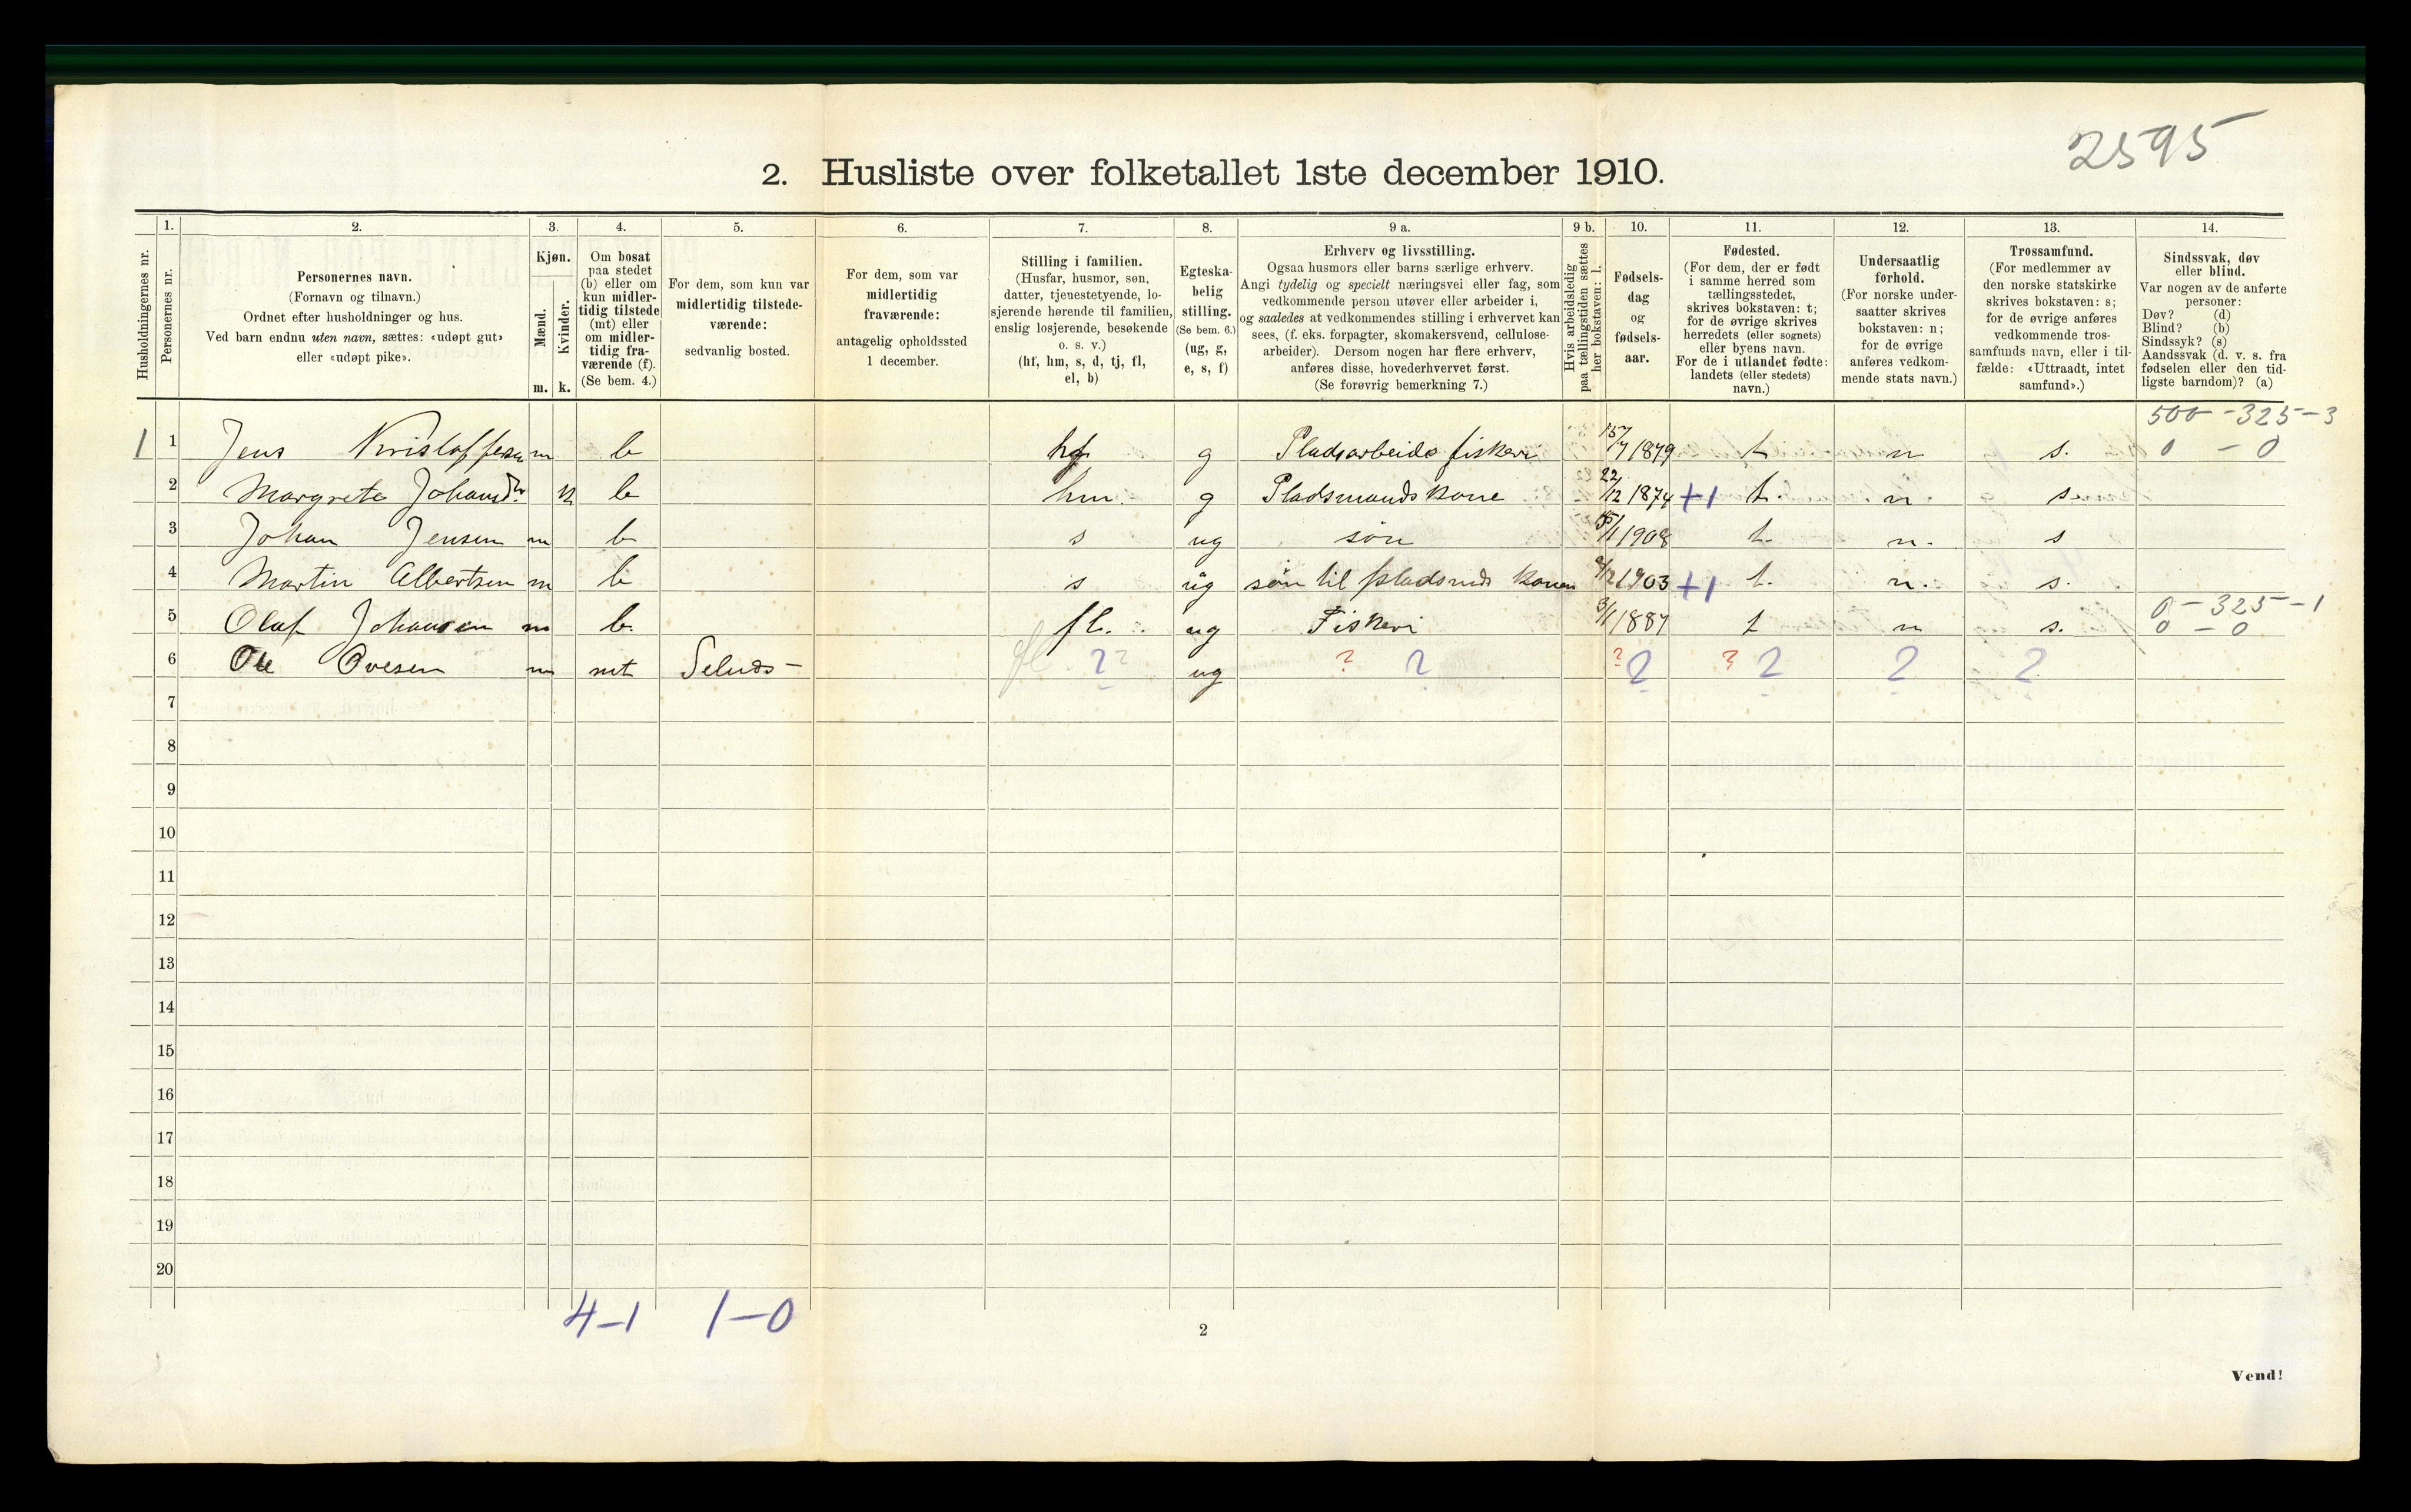 2595
2. Husliste over folketallet 1ste december 1910.
Husholdningernes nr.
1.
Personernes nr.
2.
Personernes navn.
(Fornavn og tilnavn.)
Ordnet efter husholdninger og hus.
Ved barn endnu uten navn, sættes: «udøpt gut»
eller «udøpt pike».
3.
Kjøn.
Mænd.
Kvinder.
m. k.
4.
Om bosat
paa stedet
(b) eller om
kun midler-
tidig tilstede
(mt) eller
om midler-
tidig fra-
værende (f).
(Se bem. 4.)
5.
For dem, som kun var
midlertidig tilstede-
værende:
sedvanlig bosted.
6.
For dem, som var
midlertidig
fraværende:
antagelig opholdssted
1 december.
7.
Stilling i familien.
(Husfar, husmor, søn,
datter, tjenestetyende, lo-
sjerende hørende til familien,
enslig losjerende, besøkende
o. s. v.)
(hf, hm, s, d, tj, fl,
el, b)
8.
Egteska-
belig
stilling.
(Se bem. 6.)
(ug, g,
e, s, f)
9 a.
Erhverv og livsstilling.
Ogsaa husmors eller barns særlige erhverv.
Angi tydelig og specielt næringsvei eller fag, som
vedkommende person utøver eller arbeider i,
og saaledes at vedkommendes stilling i erhvervet kan
sees, (f. eks. forpagter, skomakersvend, cellulose-
arbeider). Dersom nogen har flere erhverv,
anføres disse, hovederhvervet først.
(Se forøvrig bemerkning 7.)
9 b.
Hvis arbeidsledig
paa tællingstiden sættes
her bokstaven: l.
10.
Fødsels-
dag
og
fødsels-
aar.
11.
Fødested.
(For dem, der er født
i samme herred som
tællingsstedet,
skrives bokstaven: t;
for de øvrige skrives
herredets (eller sognets)
eller byens navn.
For de i utlandet fødte:
landets (eller stedets)
navn.)
12.
Undersaatlig
forhold.
(For norske under-
saatter skrives
bokstaven: n;
for de øvrige
anføres vedkom-
mende stats navn.)
13.
Trossamfund.
(For medlemmer av
den norske statskirke
skrives bokstaven: s;
for de øvrige anføres
vedkommende tros-
samfunds navn, eller i til-
fælde: «Uttraadt, intet
samfund».)
14.
Sindssvak, døv
eller blind.
Var nogen av de anførte
personer:
Døv? (d)
Blind? (b)
Sindssyk? (s)
Aandssvak (d. v. s. fra
fødselen eller den tid-
ligste barndom)? (a)
500-325-3
1 1 Jens Kristoffersen m b hf g Pladsarbeide fiskeri 15/7 1879 t n s. 0 - 0
2 Margrete Johansd. k b hm g Pladsmands kone 22/12 1874 +1 t. n. s.
3 Johan Jensen m b s ug søn 1908 t. n. s
4 Martin Albertsen m b s ug søn til pladsmds konen 1903 +1 t. n. s.
0-325-1
5 Olaf Johansen m b. fl. ug Fiskeri 3/1 1887 t n s. 0-0
6 Ole Ovesen m mt fl ? ? ug ? ? ? ? ? ? ? ?
7
8
9
10
11
12
13
14
15
16
17
18
19
20
4-1 1-0
2
Vend!